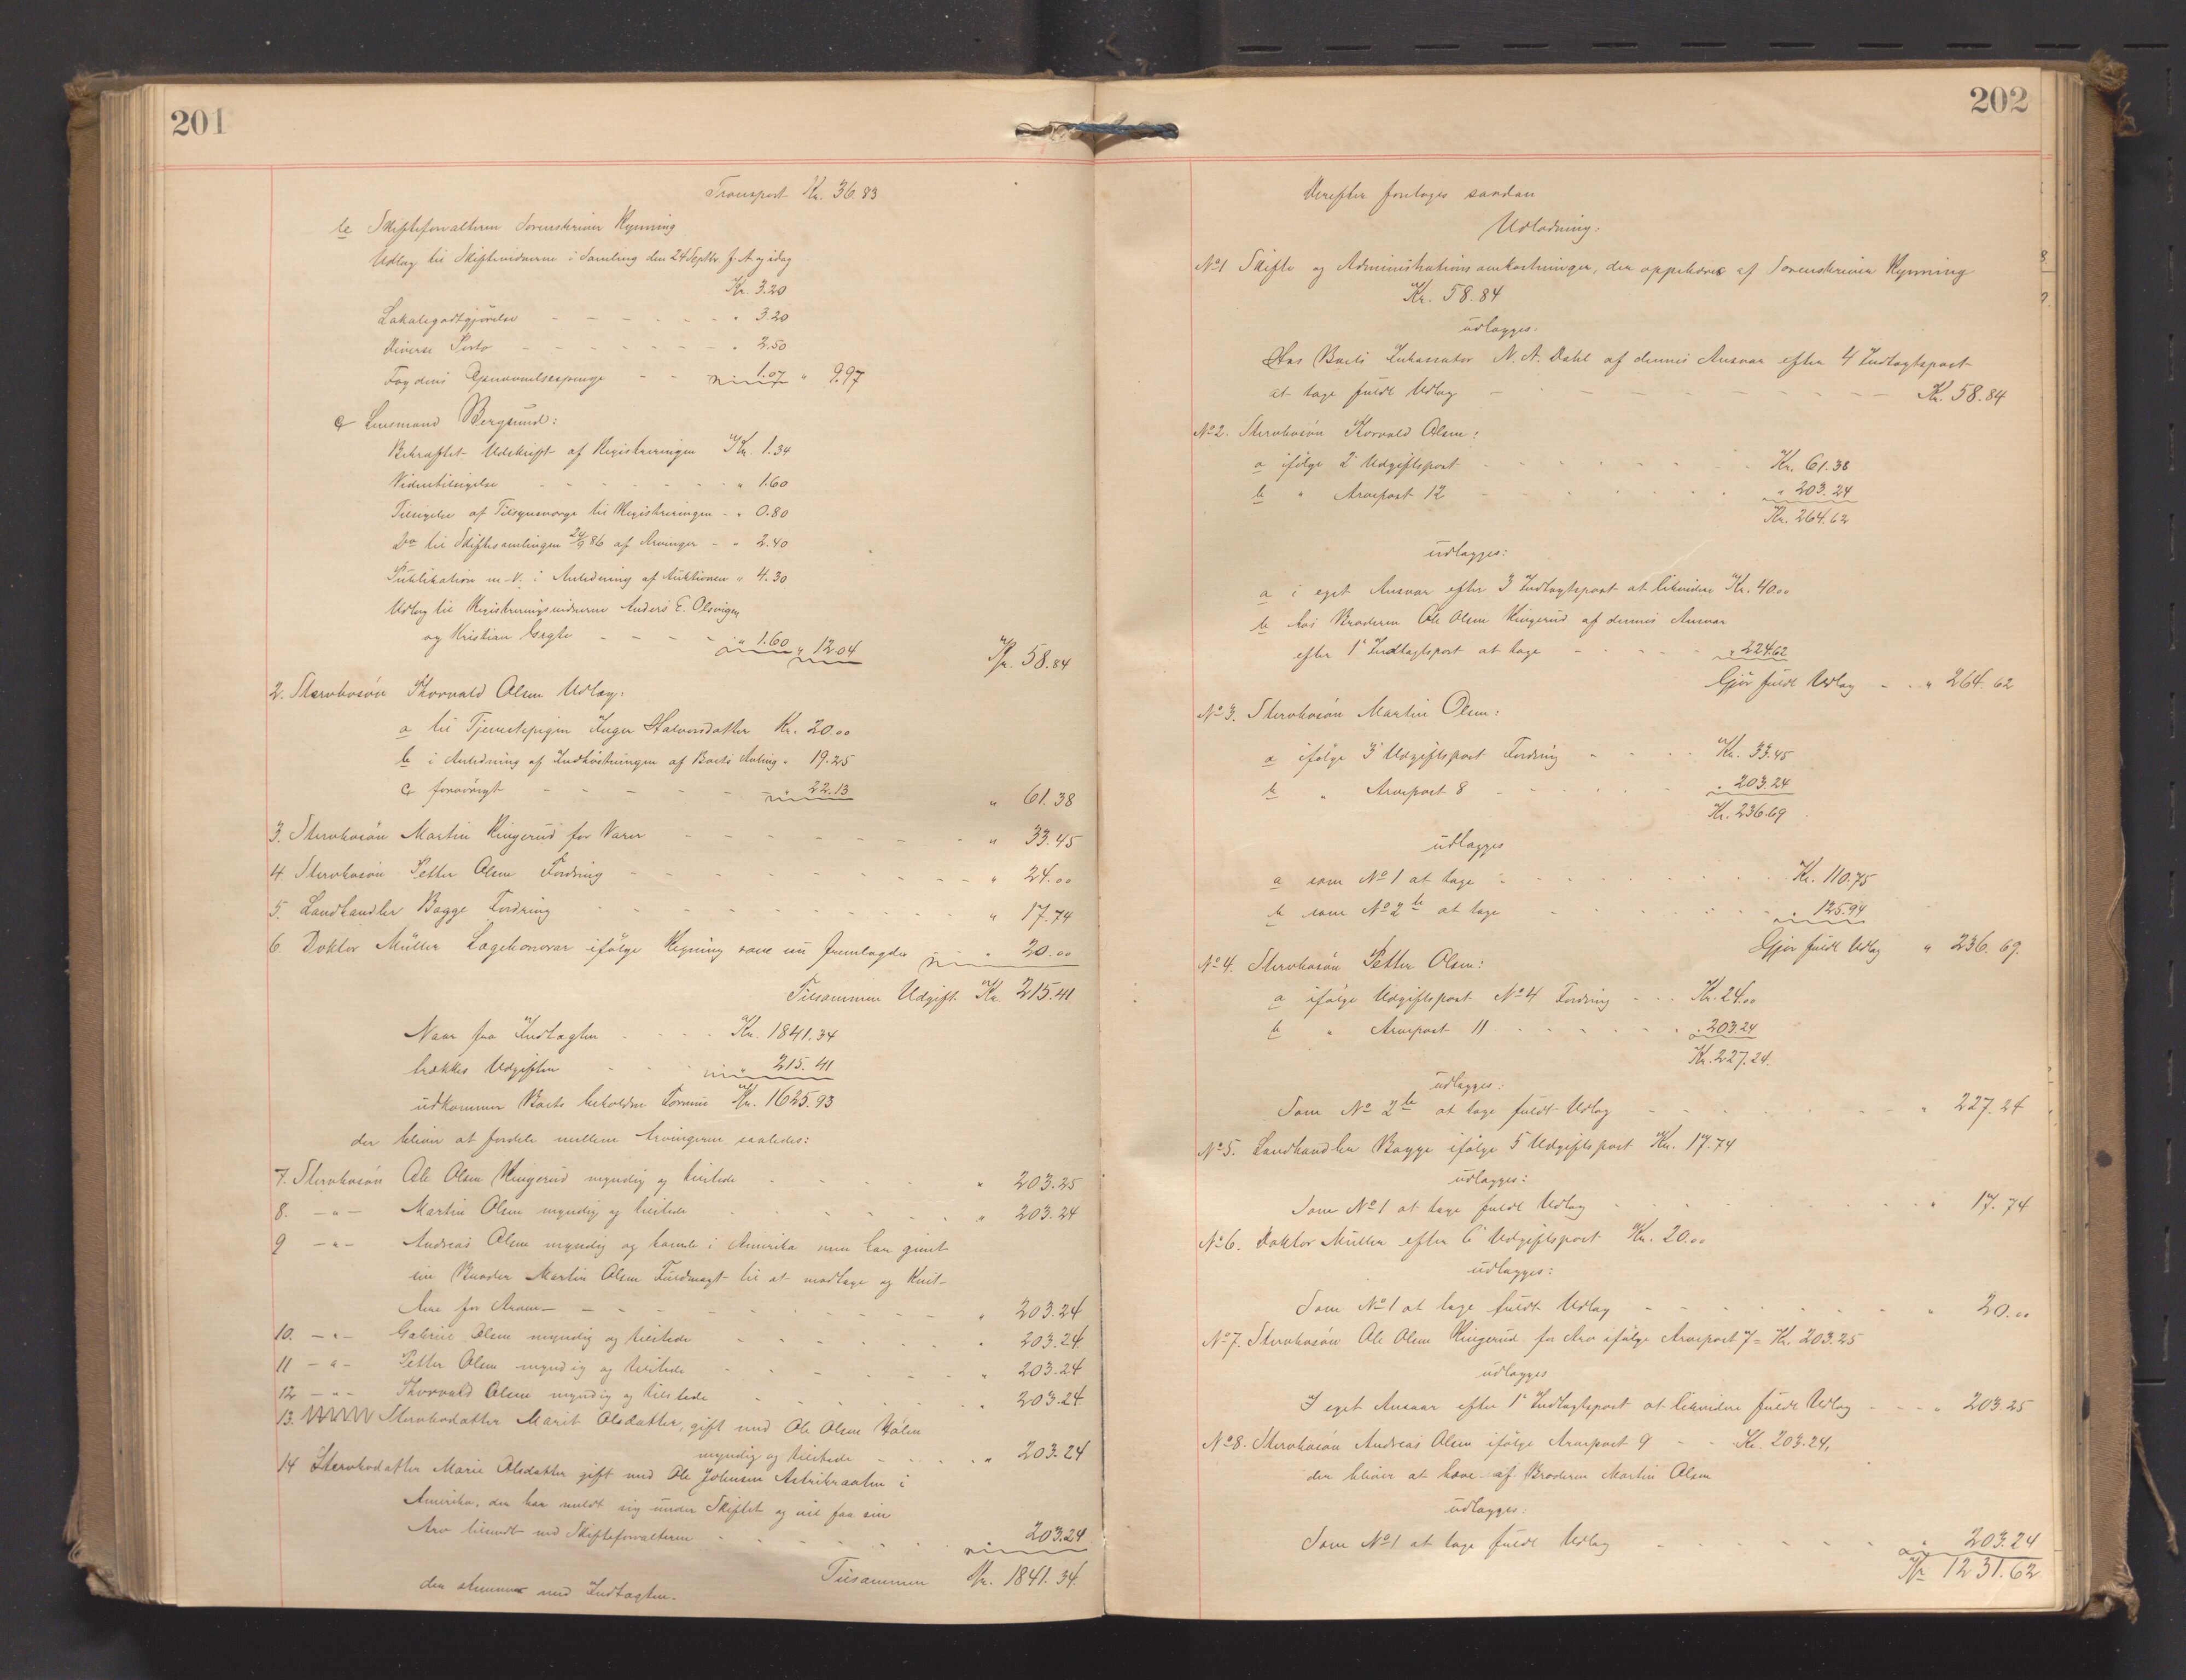 201
Transport Kr. 36.83
b Skifteforvalteren Sorenskriver Rynning
Udlæg til Skiftevidnerne i Samling den 24 Septbr. f. A. og idag
Kr. 3.20
Lokalegodtgjørelse - - - - - - " 3.20
Diverse Porto - - - - - - - " 2.50
Fogdens - - " 1.07 " 9.97
c Lensmand Bergsund:
Bekræftet Udskrift af Registreringen Kr. 1.34
Vidnetilsigelse - - - - - - " 1.60
Tilsigelse af Tilsynsværge til Registreringen - " 0.80
Do til Skiftesamlingen 24/9 86 af Arvinger - " 2.40
Publikation m. V. i Anledning af Auktionen " 4.30
Udlæg til Registreringsvidnerne Anders E. Olsvigen
og Kristian - - - - " 1.60 " 12.04 Kr. 58.84
2. Stervbosøn Thorvald Olsen Udlæg:
a til Tjenestepigen Inger Halvorsdatter Kr. 20.00
b i Anledning af Indhøstningen af Boets Avling " 19.25
c forøvrigt - - - - - 22.13 " 61.38
3. Stervbosøn Martin Ringerud for Varer - - - - - - " 33.45
4. Stervbosøn Petter Olsen Fordring - - - - - - - " 24.00
5. Landhandler Bagge Fordring - - - - - - - " 17.74
6. Doktor Müller Lægehonorar ifølge Regning som nu fremlagdes " 20.00
Tilsammen Udgift Kr. 215.41
Naar fra Indtægten - - - Kr. 1841.34
trækkes Udgiften - - - 215.41
udkommer Boets beholdne Formue Kr. 1625.93
der bliver at fordele mellem Arvingerne saaledes:
7. Stervbosøn Ole Olsen Ringerud myndig og tilstede - - - " 203.25
8. - " - Martin Olsen myndig og tilstede - - - - " 203.24
9 - " - Andreas Olsen myndig og boende i Amerika som har givet
sin Broder Martin Olsen Fuldmagt til at modtage og kvit-
tere for Arven - - - - - - - " 203.24
10. - " - Gabriel Olsen myndig og tilstede - - - - " 203.24
11 - " - Petter Olsen myndig og tilstede - - - - " 203.24
12 - " - Thorvald Olsen myndig og tilstede - - - - " 203.24
13. Stervbodatter Marit Olsdatter, gift med Ole Olsen
myndig og tilstede - - - " 203.24
14 Stervbodatter Marie Olsdatter gift med Ole Johnsen i
Amerika, der har meldt sig under Skiftet og vil faa sin
Arv tilsendt ved Skifteforvalteren - - - - 203.24
Tilsammen Kr. 1841.34.
der stemmer med Indtægten.
202
Derefter foretoges saadan
Udlodning:
No 1 Skifte og Administrationsomkostninger, der oppebæres af Sorenskriver Rynning
Kr. 58.84
udlægges:
Hos Boets Inkassator N. A. Dahl af dennes Ansvar efter 4 Indtægtspost
at tage fuldt Udlæg - - - - - - - - Kr. 58.84
No 2. Stervbosøn Thorvald Olsen:
a ifølge 2 Udgiftspost - - - - - - Kr. 61.38
b " Arvepost 12 - - - - - - " 203.24
Kr. 264.62
udlægges:
a i eget Ansvar efter 3 Indtægtspost at likvidere Kr. 40.00
b hos Broderen Ole Olsen Ringerud af dennes Ansvar
efter 1 Indtægtspost at tage - - - - " 224.62
Gjør fuldt Udlæg - - " 264.62
No 3. Stervbosøn Martin Olsen:
a ifølge 3 Udgiftspost Fordring - - - Kr. 33.45
b " Arvepost 8 - - - - " 203.24
Kr. 236.69
udlægges
a som No 1 at tage - - - - - - Kr. 110.75
b som No 2 b at tage - - - - - - 125.94
Gjør fuldt Udlæg " 236.69.
No 4. Stervbosøn Petter Olsen:
a ifølge Udgiftspost No 4 Fordring - - - Kr. 24.00
b " Arvepost 11 - - - - - " 203.24
Kr. 227.24.
udlægges:
Som No 2 b at tage fuldt Udlæg - - - - - - " 227.24
No 5. Landhandler Bagge ifølge 5 Udgiftspost Kr. 17.74
udlægges:
Som No 1 at tage fuldt Udlæg - - - - - - " 17.74
No 6. Doktor Müller efter 6 Udgiftspost Kr. 20.00
udlægges:
Som No 1 at tage fuldt Udlæg - - - - - - " 20.00
No 7. Stervbosøn Ole Olsen Ringerud for Arv ifølge Arvepost 7 - Kr. 203.25
udlægges
I eget Ansvar efter 1 Indtægtspost at likvidere fuldt Udlæg - - - " 203.25
No 8. Stervbosøn Andreas Olsen ifølge Arvepost 9 - - Kr. 203.24,
der bliver at hæve af Broderen Martin Olsen
udlægges:
Som No 1 at tage fuldt Udlæg - - - - - - " 203.24
Kr 1231.62